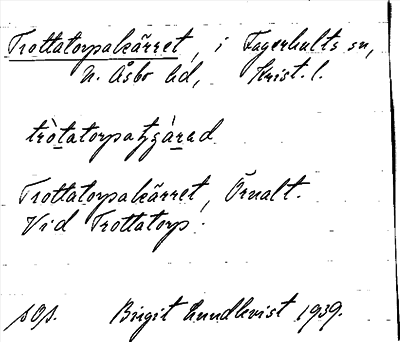 Trottatorpakärret, i Fagerhults sn,
N. Åsbo hd, Krist. l.
Trottatorpakärret, Örnalt.
Vid Trottatorp.
sOs. Birgit Lundkvist 1939.